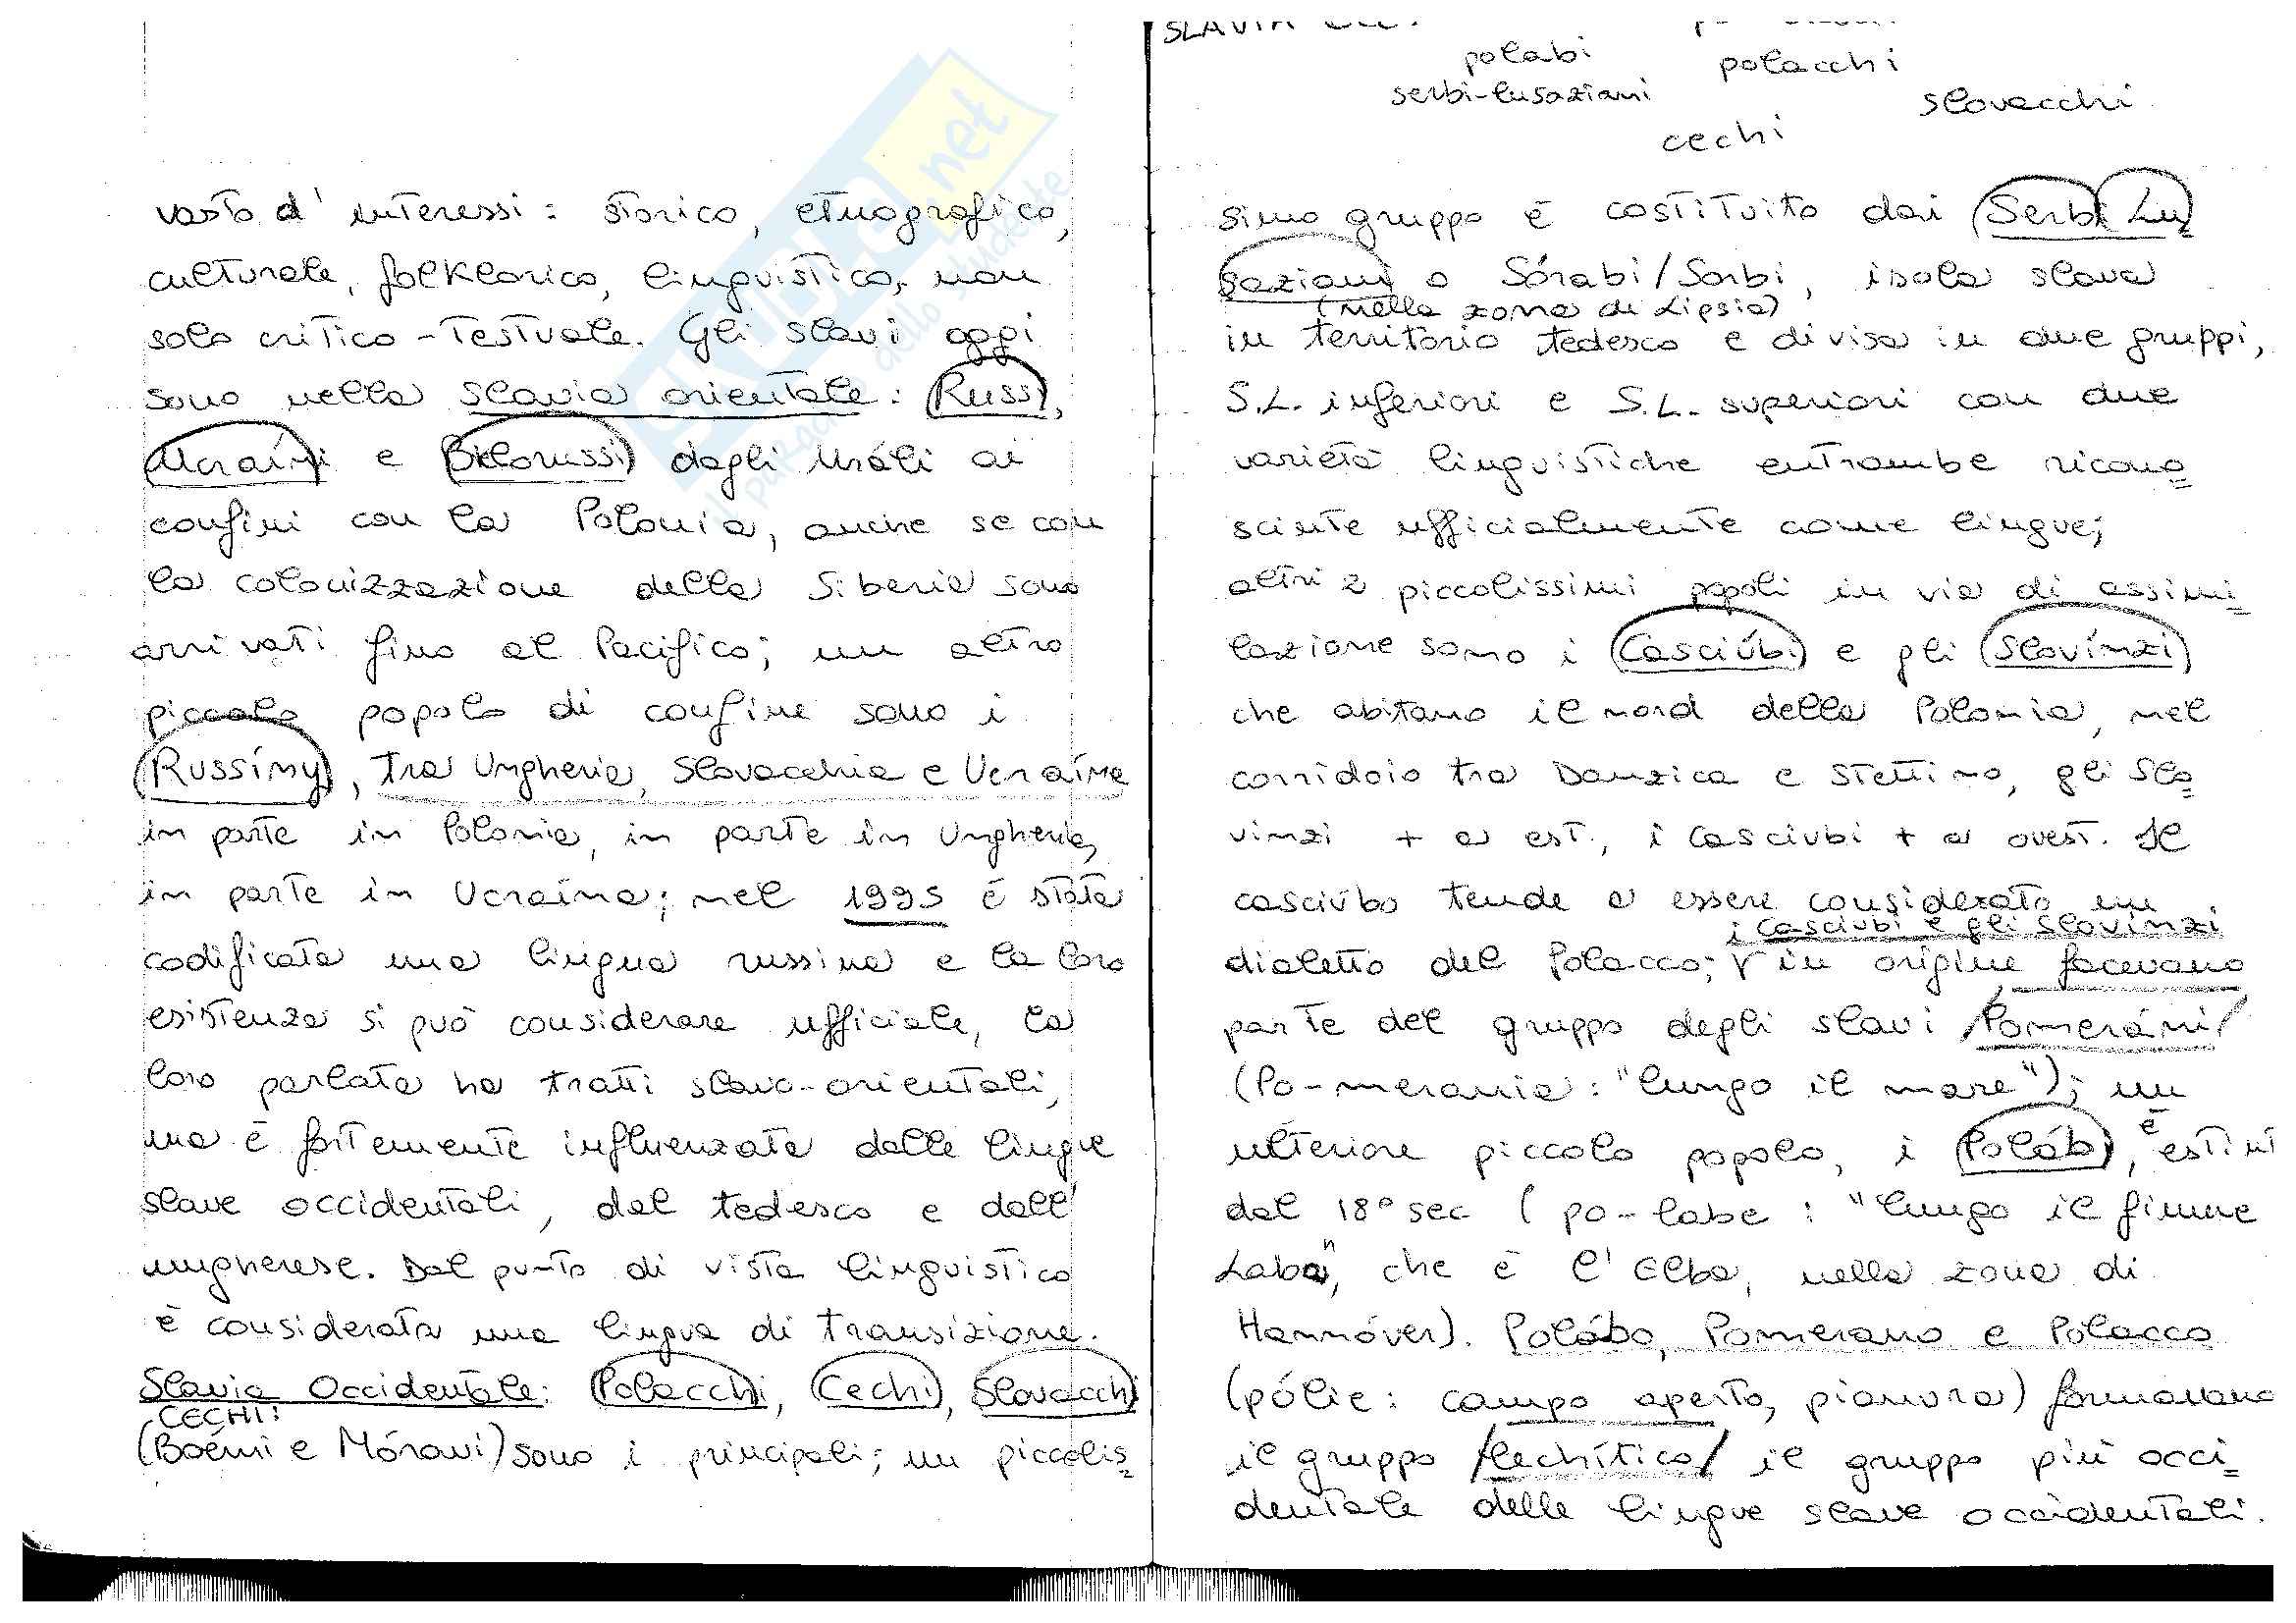 vasto d' interessi: storico, etnografico,
culturale, folklorico, linguistico, non
solo critico-testuale. Gli slavi oggi
sono nella slavia orientale: Russi,
Ucraíni e Bielorussi dagli Uráli ai
confini con la Polonia, anche se con
la colonizzazione della Siberia sono
arrivati fino al Pacifico; un altro
piccolo popolo di confine sono i
Russíny, tra Ungheria, Slovacchia e Ucraína
in parte in Polonia, in parte in Ungheria,
in parte in Ucraína; nel 1995 è stata
codificata una lingua russina e la loro
esistenza si può considerare ufficiale, la
loro parlata ha tratti slavo-orientali,
ma è fortemente influenzata dalle lingue
slave occidentali, dal tedesco e dall'
ungherese. Dal punto di vista linguistico
è considerata una lingua di transizione.
Slavia Occidentale: Polacchi, Cechi, Slovacchi
CECHI:
(Boémi e Móravi) sono i principali; un piccolis=
SLAVIA
polabi polacchi
serbi-lusaziani
slovacchi
cechi
simo gruppo è costituito dai Serbi Lu=
saziani o Sórabi/Sorbi, isola slava
(nella zona di Lipsia)
in territorio tedesco e divisa in due gruppi,
S.L. inferiori e S.L. superiori con due
varietà linguistiche entrambe ricono=
sciute ufficialmente come lingue;
altri 2 piccolissimi popoli in via di assimi=
lazione sono i Casciúbi e gli Slovínzi
che abitano il nord della Polonia, nel
corridoio tra Danzica e Stettino, gli Slo=
vinzi + a est, i Casciubi + a ovest. Il
casciúbo tende a essere considerato un
i casciubi e gli slovinzi
dialetto del Polacco; in origine facevano
parte del gruppo degli slavi /Pomeráni/
(Po-merania: "lungo il mare"); un
ulteriore piccolo popolo, i Polábi, è estinto
dal 18° sec (po-labe: "lungo il fiume
Laba", che è l'Elba, nella zona di
Hannóver). Polábo, Pomerano e Polacco
(pólie: campo aperto, pianura) formavano
il gruppo /lechítico/ il gruppo più occi=
dentale delle lingue slave occidentali.